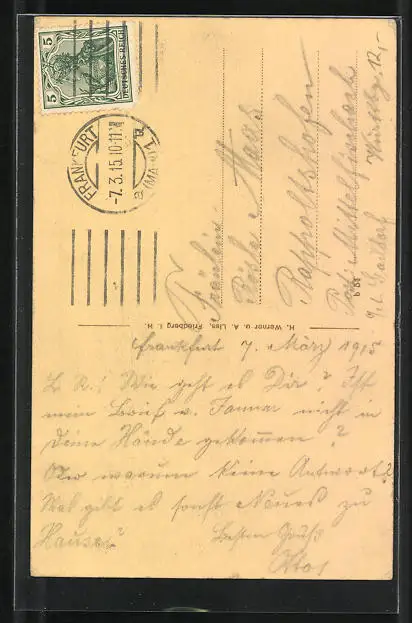 5 DEUTSCHES REICH 5
FRANKFURT
-7.3.15.10-11
(MAIN) 1
Fräulein
Rosle Maas
Rappoltshofen
Post Mittelfischach
H. Werner u. A. Liss, Friedberg i. H.
Frankfurt 7. März 1915
L. R.! Wie geht es Dir? Ist
mein Brief v. Januar nicht in
Deine Hände gekommen?
warum keine Antwort?
gibt es sonst Neues zu
Hause?
Besten Gruß